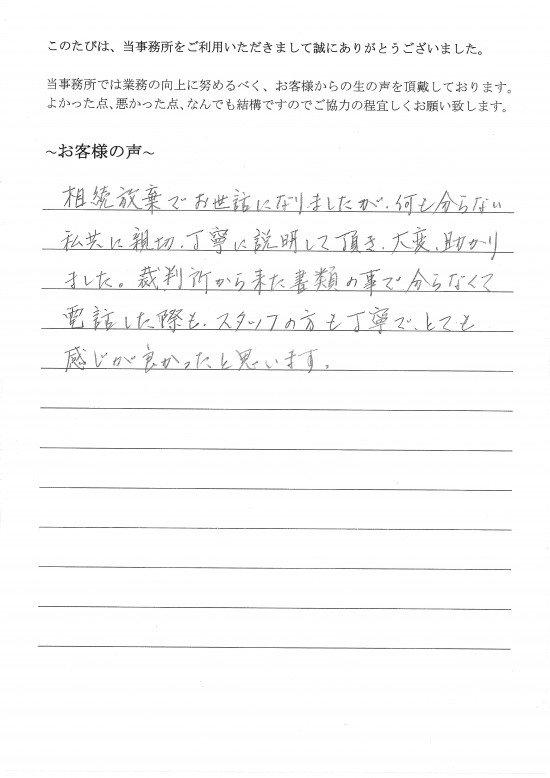 このたびは、当事務所をご利用いただきまして誠にありがとうございました。
当事務所では業務の向上に努めるべく、お客様からの生の声を頂戴しております。
よかった点、悪かった点、なんでも結構ですのでご協力の程宜しくお願い致します。
~お客様の声~
相続放棄でお世話になりましたが、何も分らない
私共に親切、丁寧に説明して頂き、大変、助かり
ました。裁判所から来た書類の事で分らなくて
電話した際も、スタッフの方も丁寧で、とても
感じが良かったと思います。